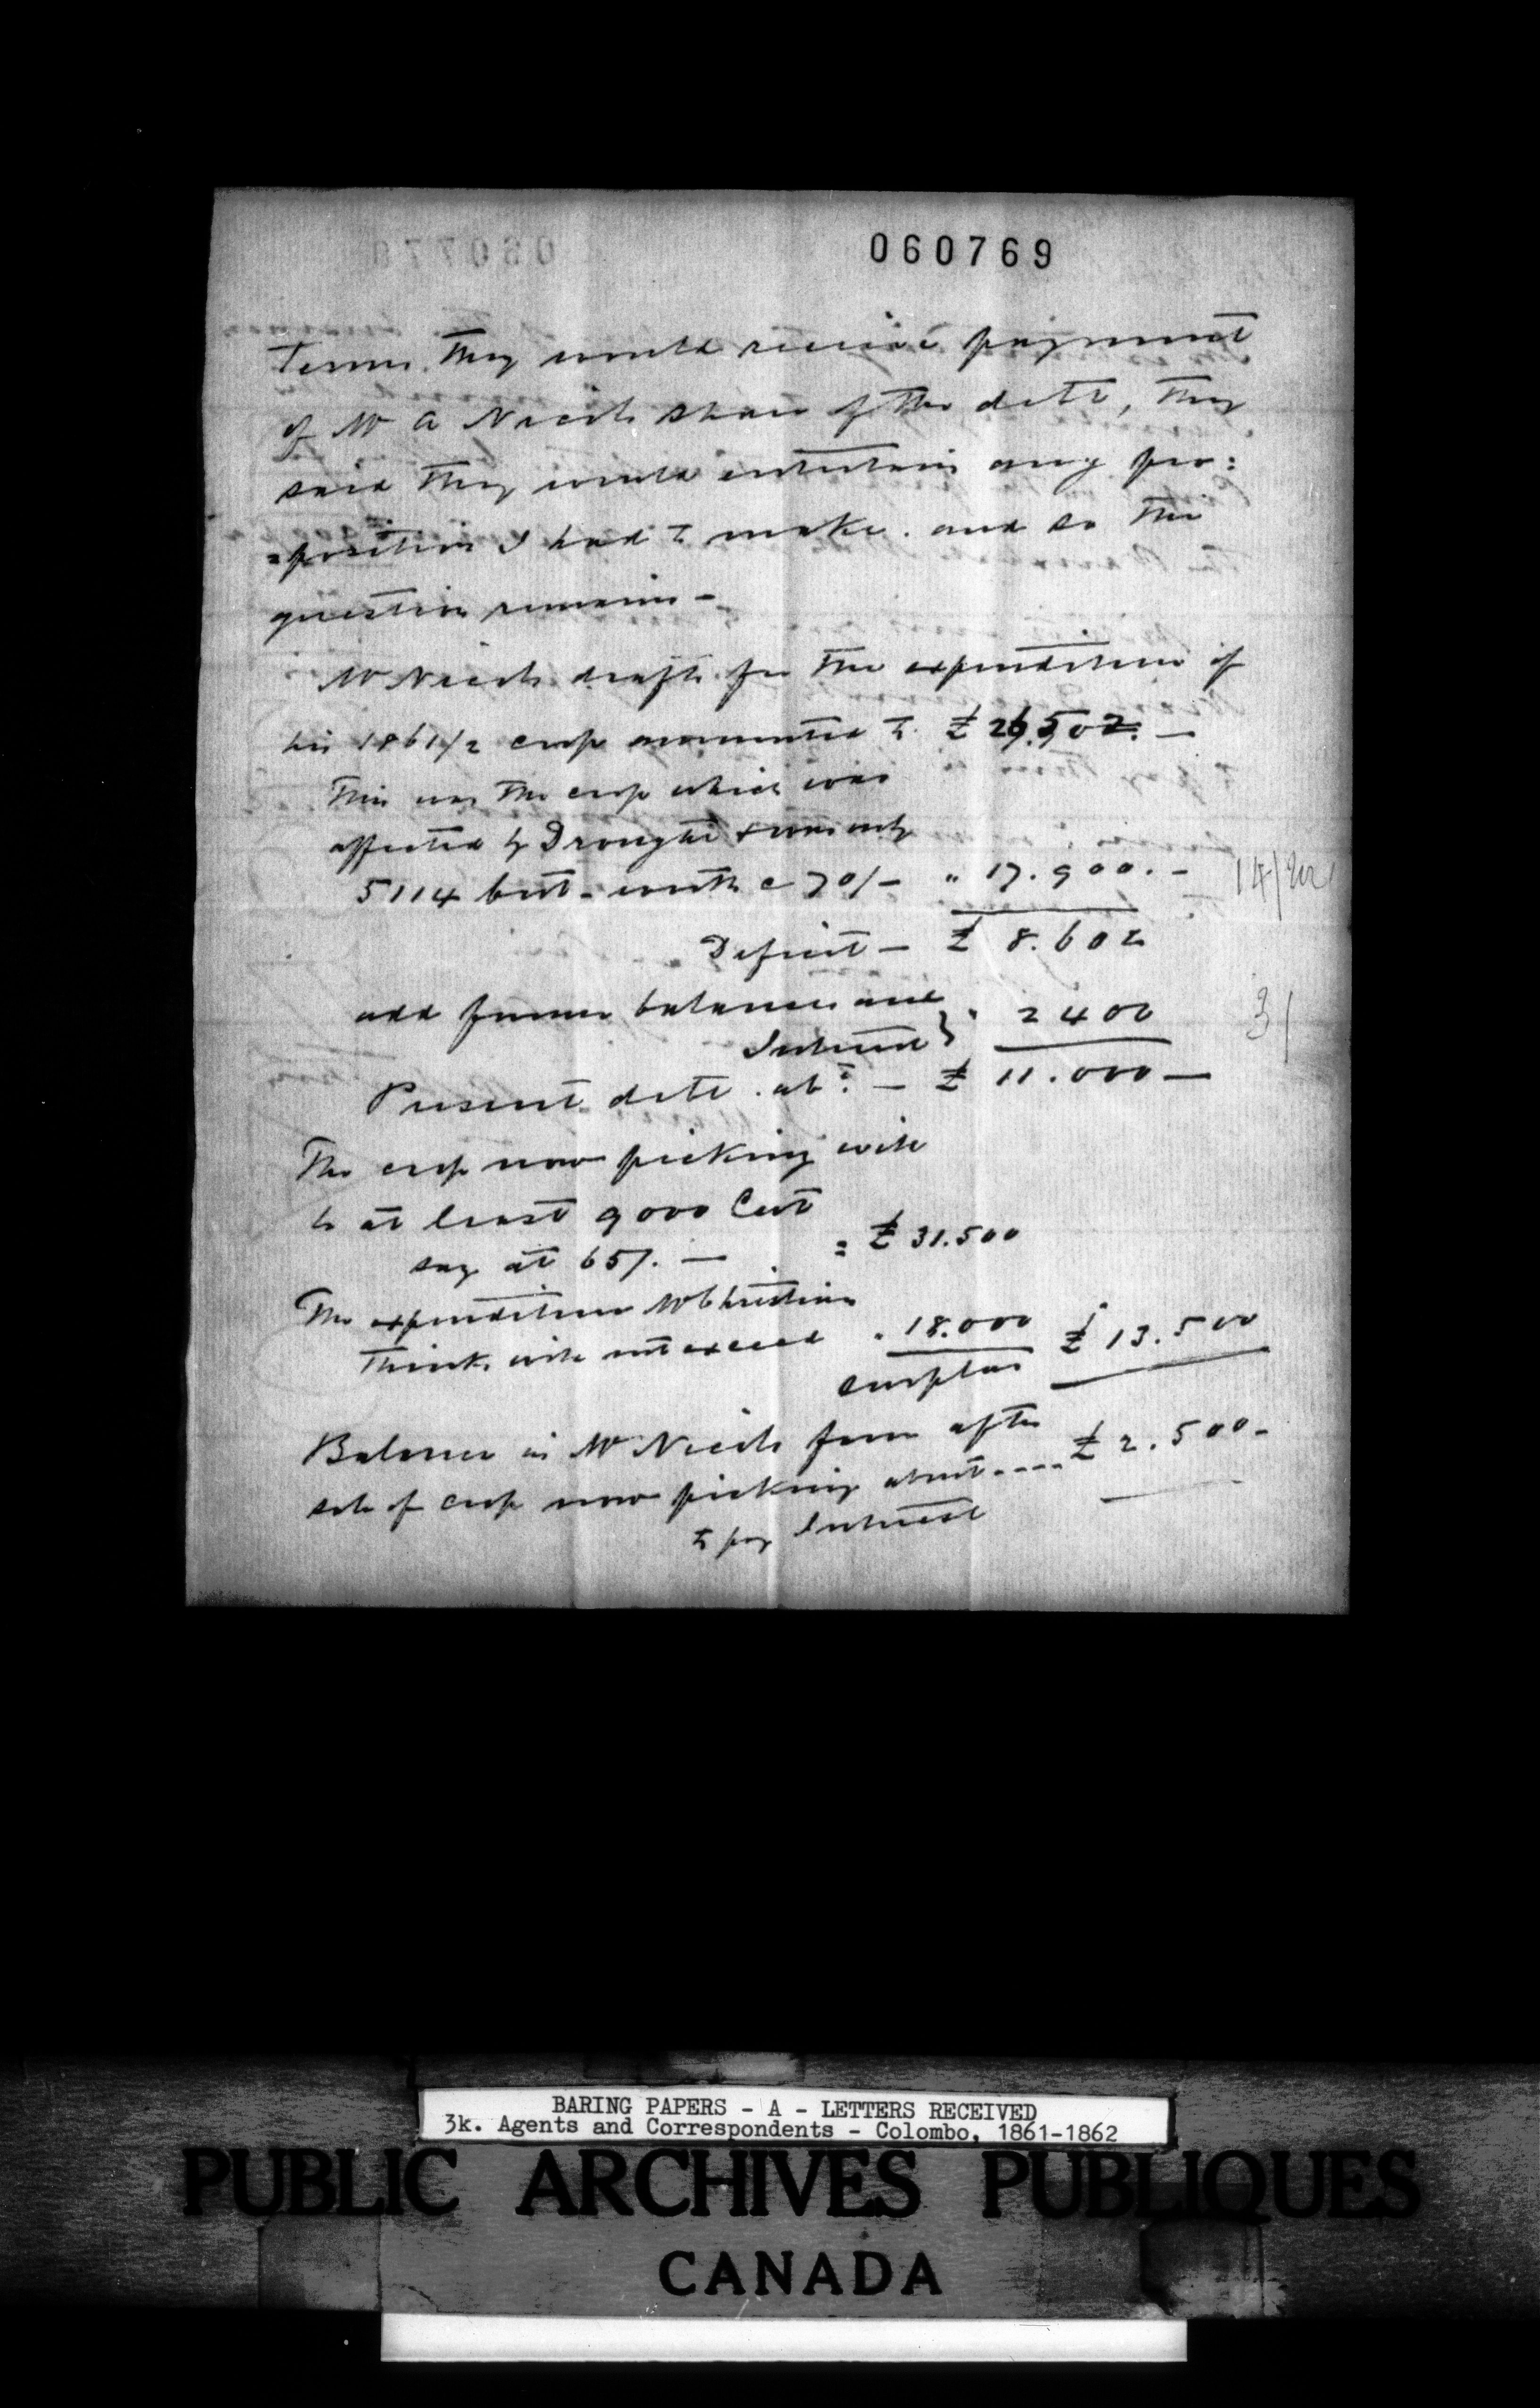 060769
Terms. They would receive payment
of Mr A Nicols share of the debt, They
said They would entertain any pro:
=position I had to make. and so the
question remains -
Mr Nicols drafts for the expenditure of
his 1861/2 crop amounted to £ 26,502. —
This was the crop which was
affected by Drought & was only
5114 cwt - worth @ 70/- " 17.900. -
Deficit — £ 8.602
add former balances and
Interest } " 2400
Present debt. abt. — £ 11.000 —
The crop now picking will
be at least 9000 Cwt
say at 65/. — = £ 31.500
The expenditure Mr Christian
Thinks will not exceed " 18.000 £ 13.500
surplus
Balance in Mr Nicols favor after
sale of crop now picking about .... £ 2.500 -
to pay Interest
31
BARING PAPERS - A - LETTERS RECEIVED
3k. Agents and Correspondents - Colombo, 1861-1862
PUBLIC ARCHIVES PUBLIQUES
CANADA